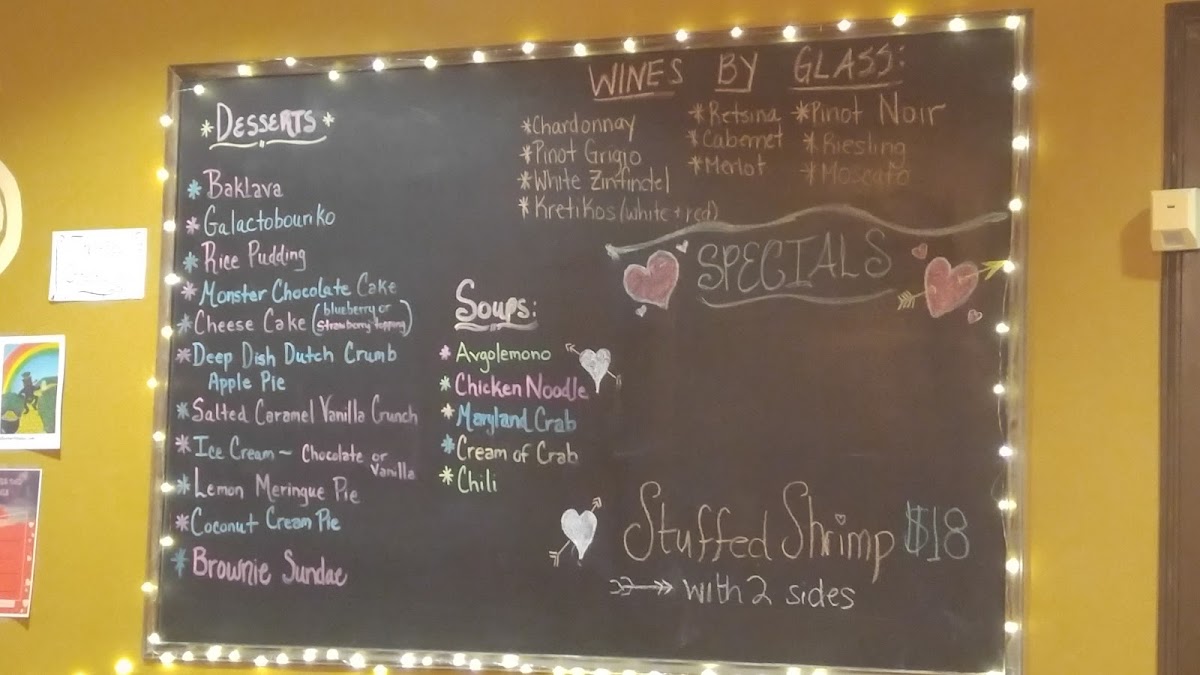 *DESSERTS*
*Baklava
*Galactobouriko
*Rice Pudding
*Monster Chocolate Cake
*Cheese Cake (blueberry or
strawberry topping)
*Deep Dish Dutch Crumb
Apple Pie
*Salted Caramel Vanilla Crunch
*Ice Cream ~ Chocolate or
Vanilla
*Lemon Meringue Pie
*Coconut Cream Pie
*Brownie Sundae
Soups:
*Avgolemono
*Chicken Noodle
*Maryland Crab
*Cream of Crab
*Chili
WINES BY GLASS:
*Chardonnay
*Pinot Grigio
*White Zinfindel
*Kretikos (white + red)
*Retsina
*Cabernet
*Merlot
*Pinot Noir
*Riesling
*Moscato
SPECIALS
Stuffed Shrimp $18
with 2 sides